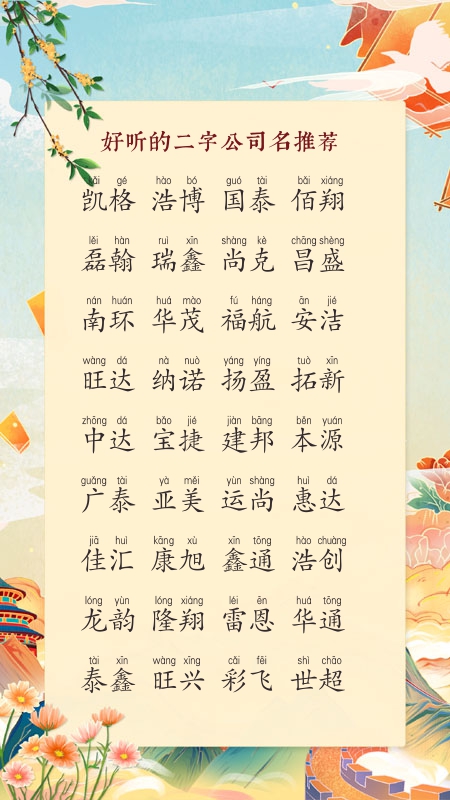 好听的二字公司名推荐
kǎi gé hào bó guó tài bǎi xiáng
凯格 浩博 国泰 佰翔
lěi hàn ruì xīn shàng kè chāng shèng
磊翰 瑞鑫 尚克 昌盛
nán huán huá mào fú háng ān jié
南环 华茂 福航 安洁
wàng dá nà nuò yáng yíng tuò xīn
旺达 纳诺 扬盈 拓新
zhōng dá bǎo jié jiàn bāng běn yuán
中达 宝捷 建邦 本源
guǎng tài yà měi yùn shàng huì dá
广泰 亚美 运尚 惠达
jiā huì kāng xù xīn tōng hào chuàng
佳汇 康旭 鑫通 浩创
lóng yùn lóng xiáng léi ēn huá tōng
龙韵 隆翔 雷恩 华通
tài xīn wàng xīng cǎi fēi shì chāo
泰鑫 旺兴 彩飞 世超